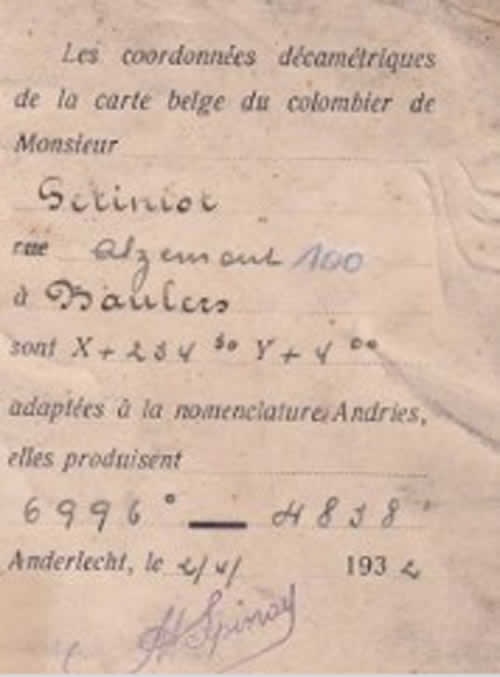 Les coordonnées décamétriques
de la carte belge du colombier de
Monsieur
rue Alzemont 100
à Baulers
sont X + 234 50 Y + 4 00
adaptées à la nomenclature Andries,
elles produisent
6996° — 4838'
Anderlecht, le 2/4/ 1932
H Spinoy